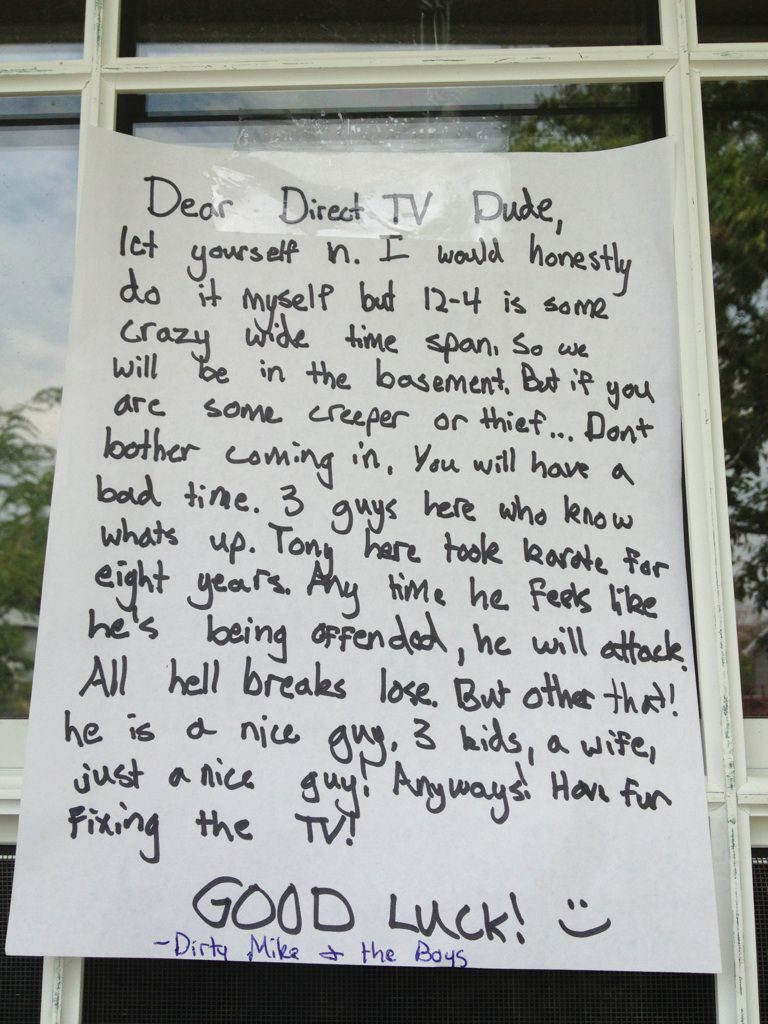 Dear Direct TV Dude,
let yourself n. I would honestly
do it myself but 12-4 is some
crazy wide time span. So we
will be in the basement. But if you
are some creeper or thief... Dont
bother coming in. You will have a
bad time. 3 guys here who know
whats up. Tony here took karate for
eight years. Any time he feels like
he's being offended, he will attack.
All hell breaks lose. But other that!
he is a nice guy. 3 kids, a wife,
just a nice guy! Anyways! Have fun
Fixing the TV!
GOOD LUCK! :)
-Dirty Mike + the Boys